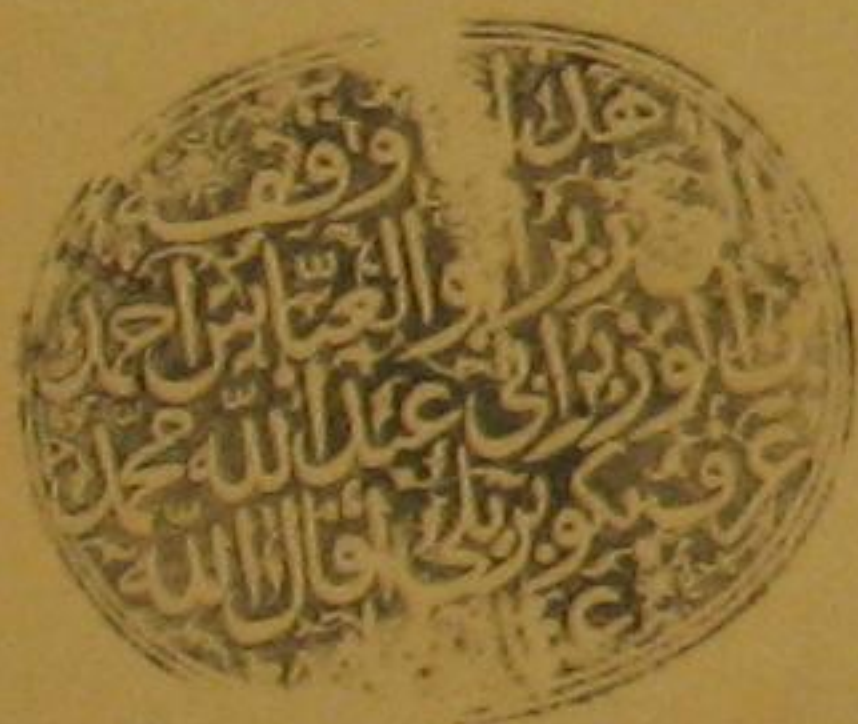 هذا وقفه
الوزير ابو العباس احمد
بن الوزير ابي عبد الله محمد
عرف بكوبريلي اقال الله